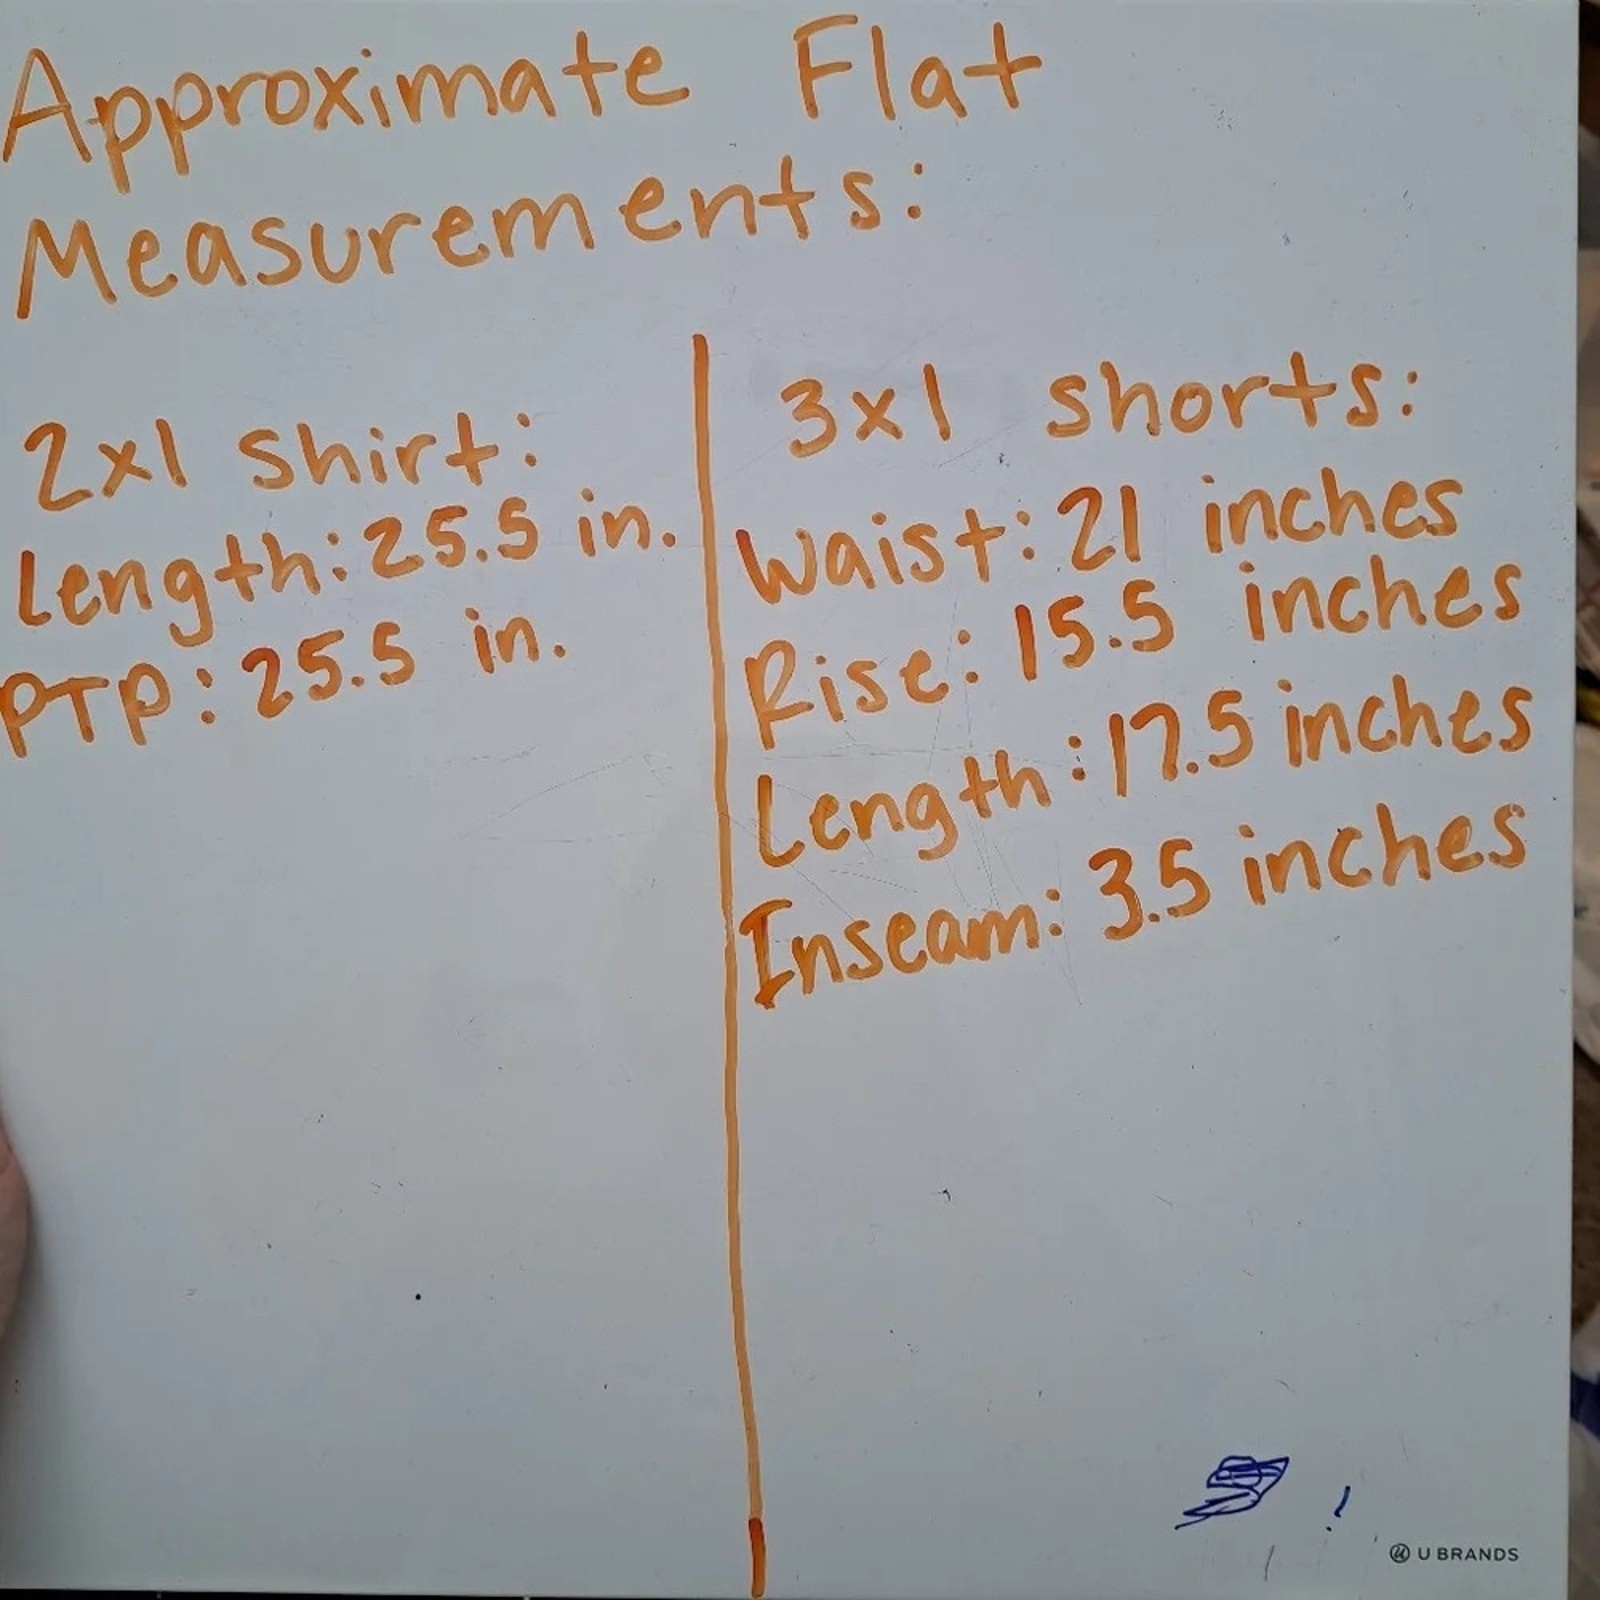 Approximate Flat
Measurements:
2x1 Shirt:
Length: 25.5 in.
PTP: 25.5 in.
3x1 shorts:
Waist: 21 inches
Rise: 15.5 inches
Length: 17.5 inches
Inseam: 3.5 inches
!
U BRANDS